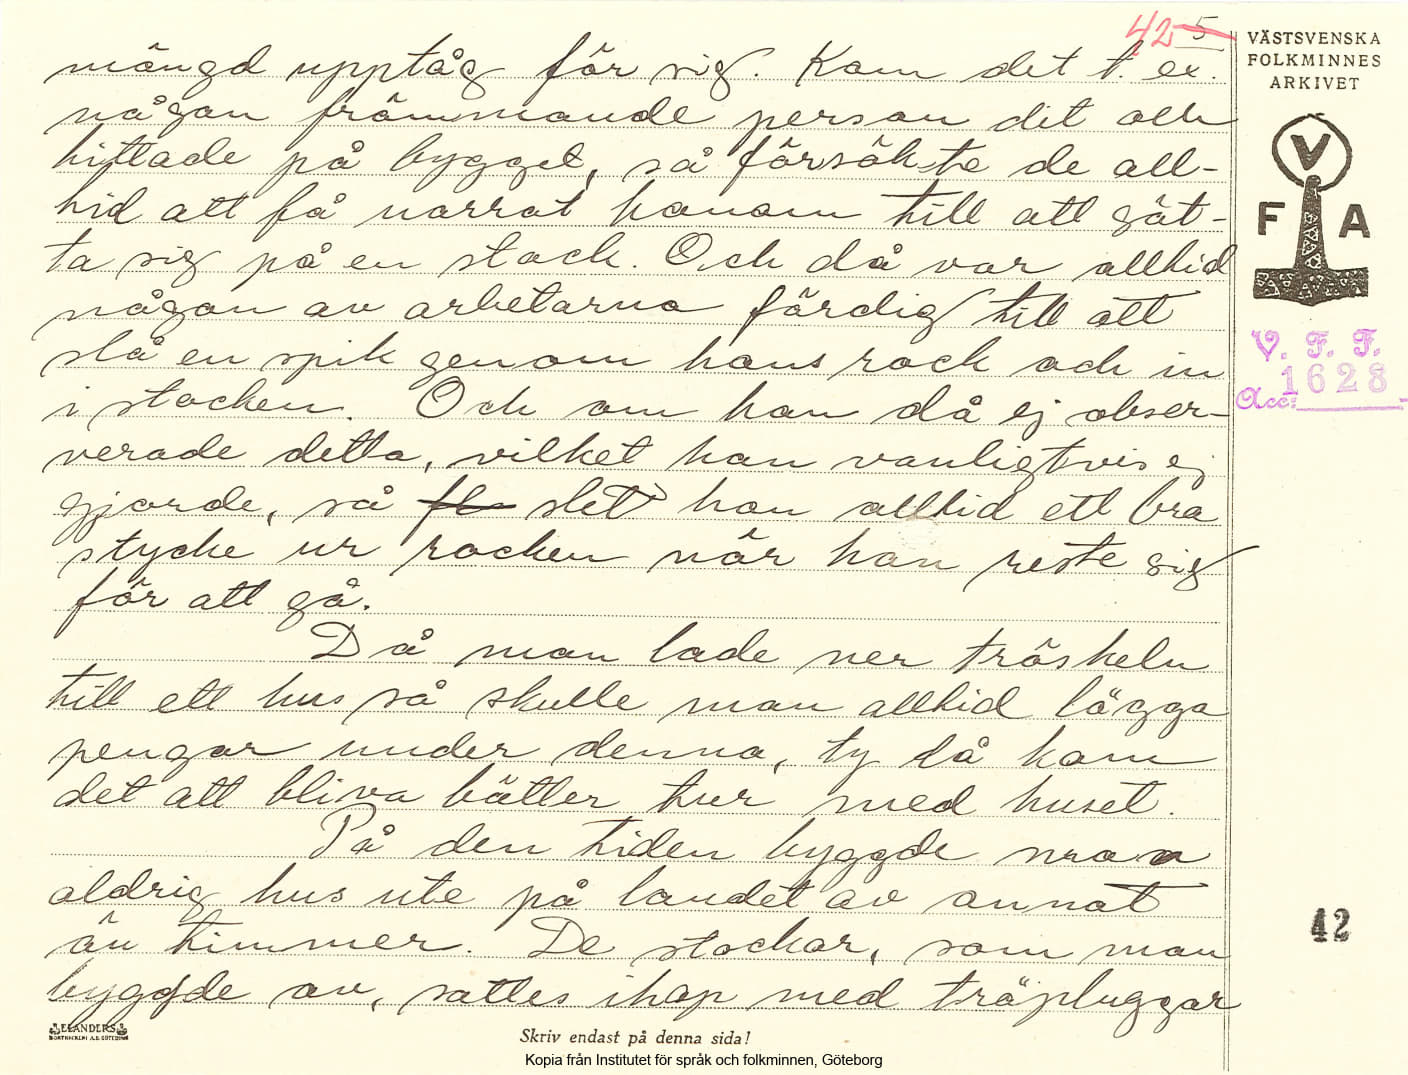 42 5
mängd upptåg för sig. Kom det t. ex.
någon främmande person dit och
tittade på bygget, så försökte de all-
tid att få narrat honom till att sät-
ta sig på en stock. Och då var alltid
någon av arbetarna färdig till att
slå en spik genom hans rock och in
i stocken. Och om han då ej obser-
verade detta, vilket han vanligtvis ej
gjorde, så slet han alltid ett bra
stycke ur rocken när han reste sig
för att gå.
Då man lade ner tröskeln
till ett hus så skulle man alltid lägga
pengar under denna, ty då kom
det att bliva bätter tur med huset.
På den tiden byggde man
aldrig hus ute på landet av annat
än timmer. De stockar, som man
byggde av, sattes ihop med träpluggar
VÄSTSVENSKA
FOLKMINNES
ARKIVET
V
F A
V. F. F.
Acc: 1628
42
ELANDERS
Skriv endast på denna sida!
Kopia från Institutet för språk och folkminnen, Göteborg